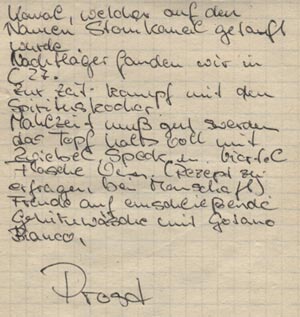 Kanal, welcher auf den
Namen Stomkanal getauft
wurde
Nachtlager fanden wir in
C 27.
Zur Zeit kampf mit den
Spirituskocher
Mahlzeit muß gut werden
da Topf halb voll mit
Zwiebel, Speck, u. viertel
Flasche (Rezept zu
erfragen bei Manschaft)
Freude auf anschließende
mit Gotano
Bianco,
Prosst